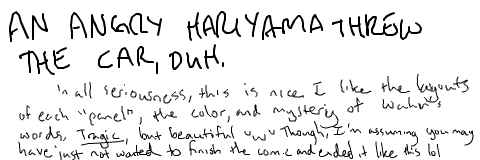 AN ANGRY HARIYAMA THREW
THE CAR, DUH.
in all seriousness, this is nice I like the layouts
of each "panel", the color, and mystery of Wahn's
words, Tragic, but beautiful uwu Though, I'm assuming you may
have just not wanted to finish the comic and ended it like this lol